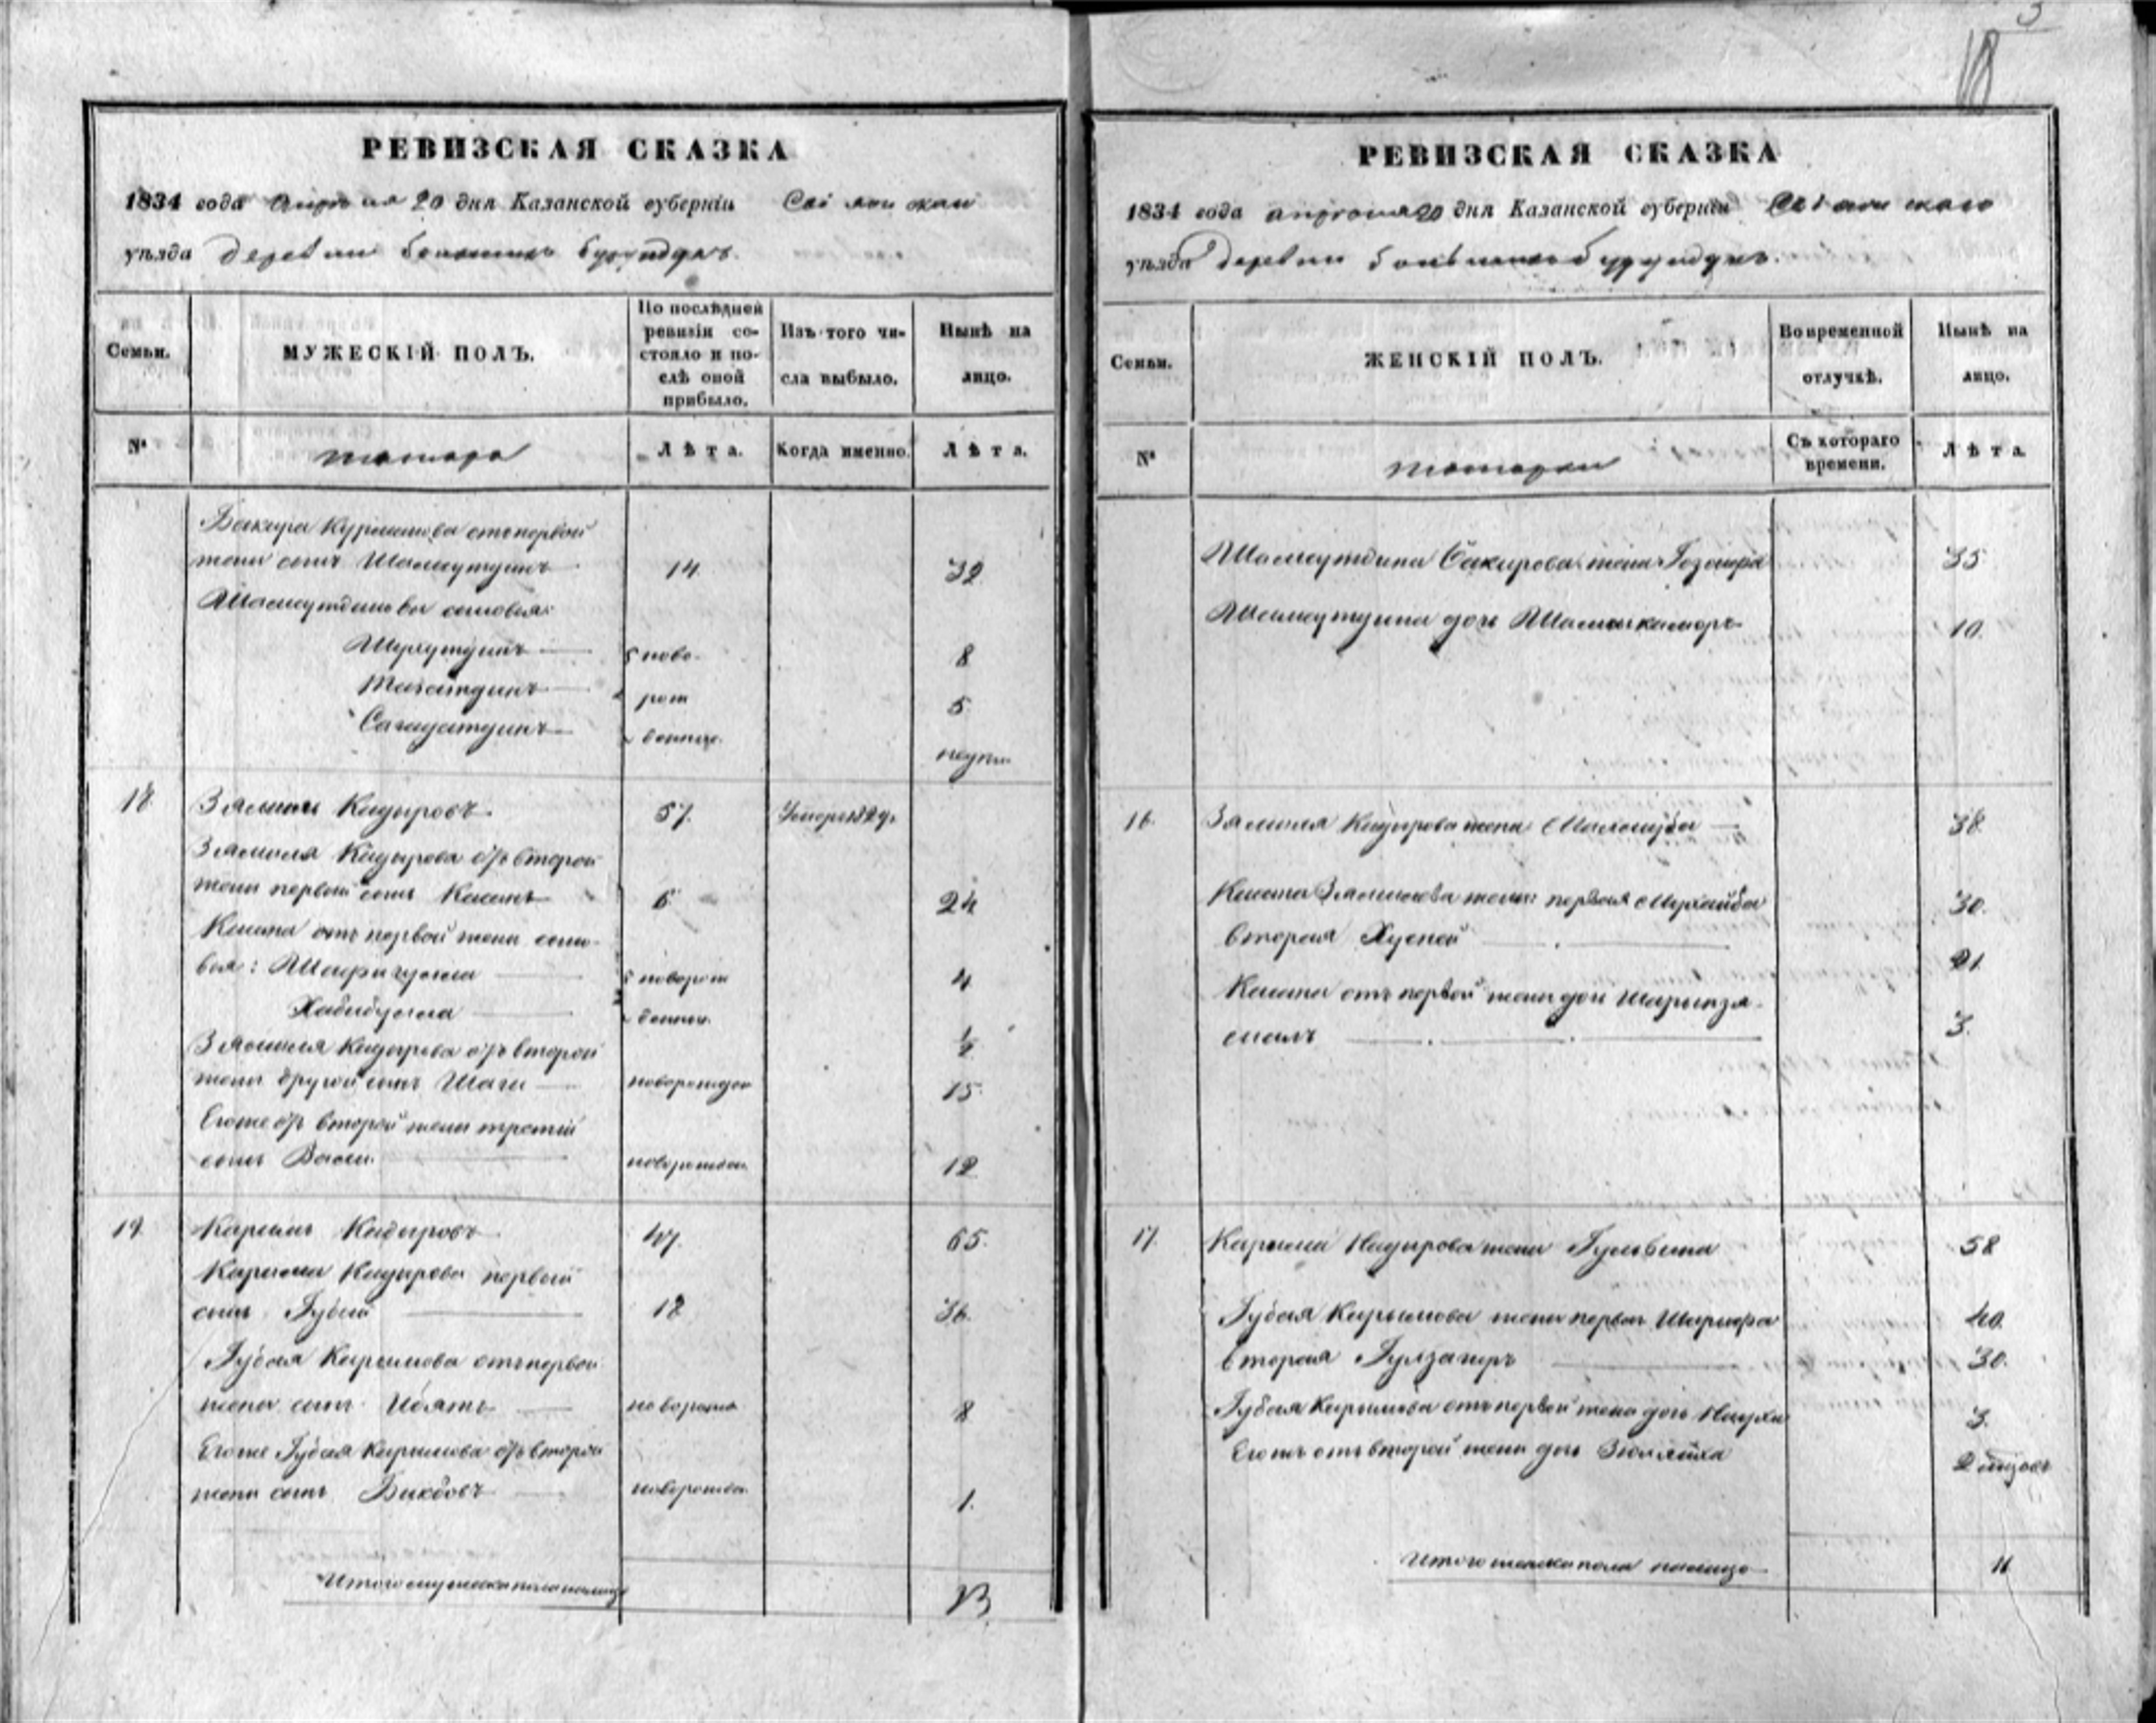 5
18
РЕВИЗСКАЯ СКАЗКА
1834 года апреля 20 дня Казанской губерніи Свіяжскаго
уѣзда деревни Большихъ Бурундукъ.
Семьи.
МУЖЕСКІЙ ПОЛЪ.
По послѣдней ревизіи состояло и послѣ оной прибыло.
Изъ того числа выбыло.
Нынѣ на лицо.
№
татара
Лѣта.
Когда именно.
Лѣта.
Бакира Курамшова отъ первой
жены сынъ Шамсутдинъ 14. 32
Шамсутдиновы сыновья:
ново- 8
5
Сагадатдинъ
18 Зямиль Кадыровъ 57. Умеръ 1829.
Зямиля Кадырова отъ второй
жены первый сынъ Касимъ 6 24
отъ первой жены сыно-
вья: Шафигулла новорож 4
Хабибулла денные ½
Зямиля Кадырова отъ второй
жены другой сынъ Шаги новорожден 15.
Егоже отъ второй жены третій
сынъ Вали. новорожден. 12
19. Каримъ Кадыровъ 47. 65.
Карима Кадырова первый
сынъ Губай 18 36.
Губая Каримова отъ первой
жены сынъ Ибятъ новорожд 8
Егоже Губая Каримова отъ второй
жены сынъ новорожден. 1.
Итого мужеска пола налицо 13
РЕВИЗСКАЯ СКАЗКА
1834 года апреля 20 дня Казанской губерніи Свіяжскаго
уѣзда деревни Большихъ Бурундукъ.
Семьи.
ЖЕНСКІЙ ПОЛЪ.
Во временной отлучкѣ.
Нынѣ на лицо.
№
татарки
Съ котораго времени.
Лѣта
Шамсутдина Бакирова жена 35
Шамсутдина дочь Шамсикамаръ 10.
16. Зямиля Кадырова жена 38
жены: первая 30.
вторая Хусней 21.
отъ первой жены дочь
3.
17. Карима Кадырова жена 58
Губая Каримова жена первая Шарифа 40.
вторая Гулзагиръ 30.
Губая Каримова отъ первой жены дочь 3.
Егожъ отъ второй жены дочь Зюляйха
Итого женска пола налицо 11